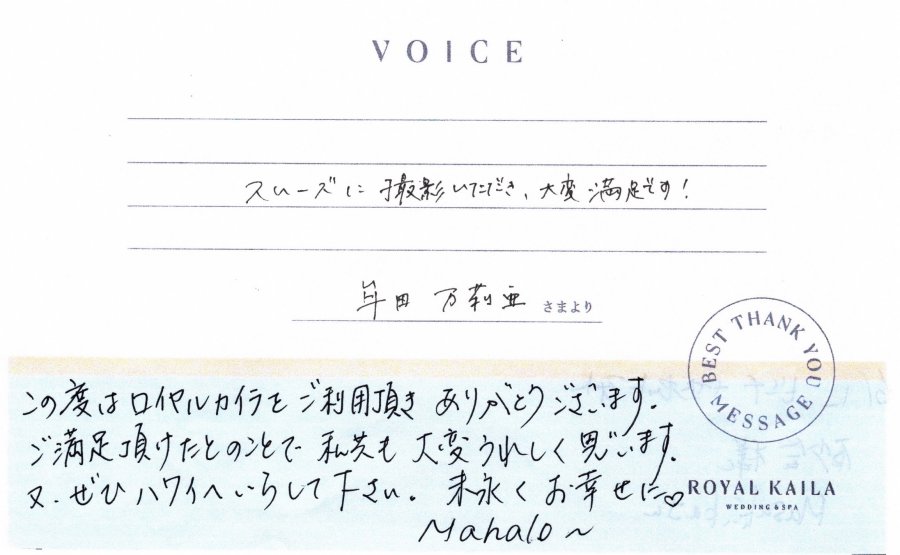 VOICE
スムーズに撮影いただき、大変満足です!
田 万莉亜 さまより
BEST THANK YOU MESSAGE
この度はロイヤルカイラをご利用頂き ありがとうございます.
ご満足頂けたとのことで 私共も 大変うれしく思います.
又、ぜひハワイへいらして下さい. 末永くお幸せに♡
ROYAL KAILA
WEDDING & SPA
Mahalo~